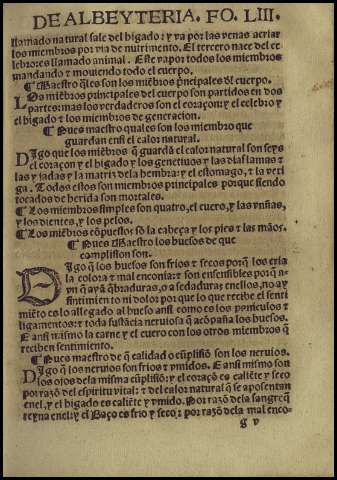 DE ALBEYTERIA. FO. LIII.
llamado natural sale del higado: y va por las venas a criar
los miembros por via de nutrimento. El tercero nace del ce
lebro: es llamado animal. Este vapor todos los miembros
mandando τ mouiendo todo el cuerpo.
¶ Maestro q̃les son los miẽbros p̃ncipales d̃l cuerpo.
LOs miẽbros principales del cuerpo son partidos en dos
partes: mas los verdaderos son el coraçon: y el celebro y
el higado τ los miembros de generacion.
¶ Pues maestro quales son los miembro que
guardan ensi el calor natural.
DIgo que los miẽbros q̃ guardã el calor natural son seys
el coraçon y el higado y los genetiuos y las
las y jadas y la matriz dela hembra: y el estomago, τ la veri
ga. Todos estos son miembros principales porque siendo
tocados de herida son mortales.
¶ Los miembros simples son quatro, el cuero, y las vñas,
y los dientes, y los pelos.
¶ Los miẽbros cõpuestos sõ la cabeça y los pies τ las mãos.
¶ Pues Maestro los huesos de que
complision son.
DIgo q̃ los huesos son frios τ secos porq̃ los cria
la colora τ malenconia: τ son ensensibles porq̃ a-
vn q̃ ayã q̃braduras, o a sedaduras enellos, no a y
sintimiento ni dolor por que lo que recibe el senti
miẽto es lo allegado al hueso ansi como es los paniculos τ
ligamentos: τ toda sustãcia neruiosa q̃ acõpaña los huesos.
E ansi mismo la carne y el cuero con los otros miembros q̃
reciben sentimiento.
¶ Pues maestro de q̃ calidad o cũplisiõ son los neruios.
DIgo q̃ los neruios son frios τ vmidos. E ansi mismo son
los ojos dela misma cũplisiõ: y el coraçõ es caliẽte y seco
por razõ del espiritu vital: τ del calor natural q̃ se aposentan
enel, y el higado es caliẽte y vmido. Por razõ dela sangre q̃
reyna enel: y el Baço es frio y seco: por razõ dela mal enco-
g v